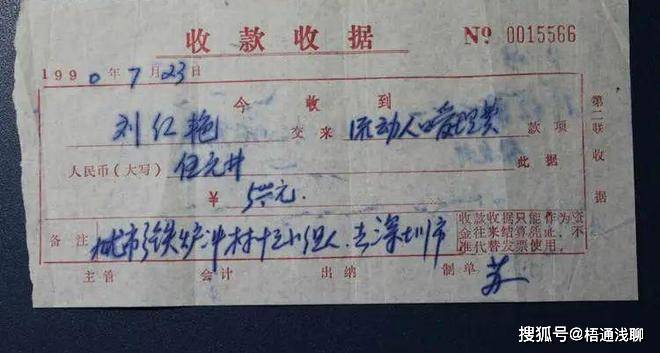 收款收据 Nº 0015566
1990年7月23日
今收到
刘红艳 交来 流动人口管理费 款项
人民币(大写) 伍元 此据
¥ 5元.
备注 城市 铁炉冲村十三小组人.去深圳市
收款收据只能作为资
金往来结算凭证,不
准代替发票使用。
主管 会计 出纳 制单 苏
第二联收据
搜狐号@梧通浅聊